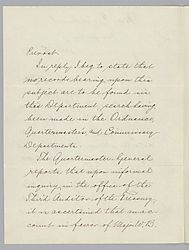 In reply I beg to state that
no records bearing upon this
subject are to be found in
this Department, search having
been made in the Ordnance,
Quartermasters, and Commissary
Departments.
The Quartermaster General
reports that upon informal
inquiry, in the office of the
Third Auditor of the Treasury
it is ascertained that an ac
count in favor of